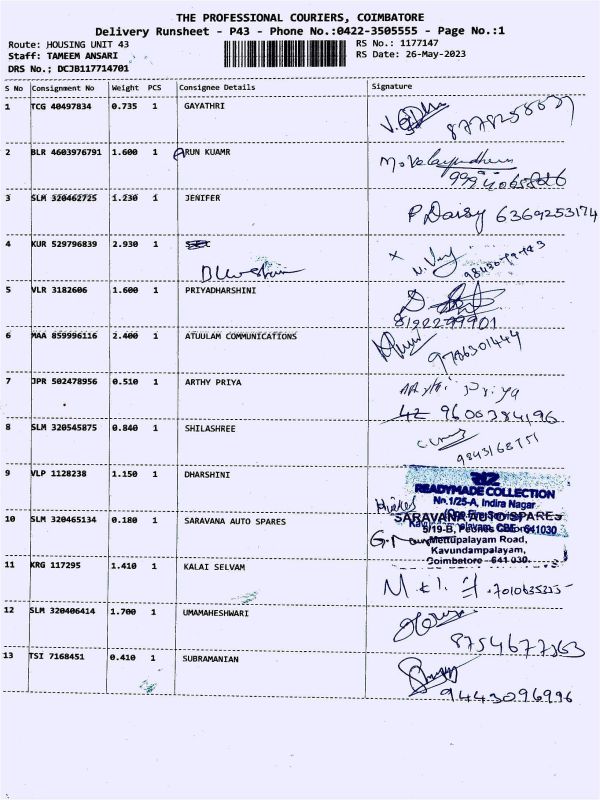 THE PROFESSIONAL COURIERS, COIMBATORE
Delivery Runsheet - P43 - Phone No.:0422-3505555 - Page No.:1
Route: HOUSING UNIT 43 RS No.: 1177147
Staff: TAMEEM ANSARI RS Date: 26-May-2023
DRS No.; DCJB117714701
S No Consignment No Weight PCS Consignee Details Signature
1 TCG 40497834 0.735 1 GAYATHRI
2 BLR 4603976791 1.600 1 ARUN KUAMR
3 SLM 320462725 1.230 1 JENIFER P. Daisy 6369253174
4 KUR 529796839 2.930 1
5 VLR 3182606 1.600 1 PRIYADHARSHINI
8122299901
6 MAA 859996116 2.400 1 ATUULAM COMMUNICATIONS 9786301444
7 JPR 502478956 0.510 1 ARTHY PRIYA
9600784196
8 SLM 320545875 0.840 1 SHILASHREE
9 VLP 1128238 1.150 1 DHARSHINI
READYMADE COLLECTION
No.1/25-A, Indira Nagar
10 SLM 320465134 0.180 1 SARAVANA AUTO SPARES SARAVANA AUTO SPARES
CBE - 641030
Mettupalayam Road,
Kavundampalayam,
Coimbatore - 641 030.
11 KRG 117295 1.410 1 KALAI SELVAM
7010635255
12 SLM 320406414 1.700 1 UMAMAHESHWARI
8754677363
13 TSI 7168451 0.410 1 SUBRAMANIAN
9443096996